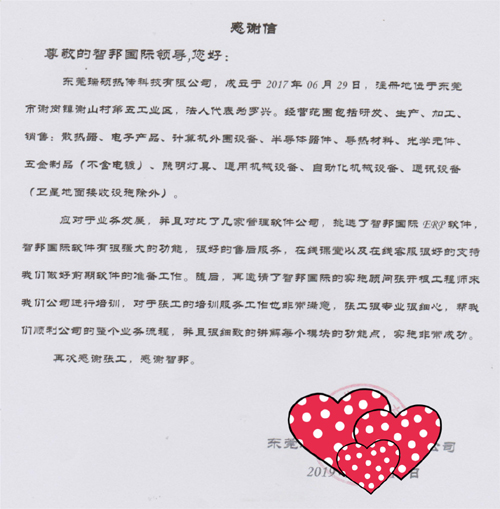 感谢信
尊敬的智邦国际领导,您好:
东莞瑞硕热传科技有限公司，成立于2017年06月29日，注册地位于东莞
市谢岗镇谢山村第五工业区，法人代表为罗兴。经营范围包括研发、生产、加工、
销售：散热器、电子产品、计算机外围设备、半导体器件、导热材料、光学元件、
五金制品（不含电镀）、照明灯具、通用机械设备、自动化机械设备、通讯设备
（卫星地面接收设施除外）。
应对于业务发展，并且对比了几家管理软件公司，挑选了智邦国际ERP软件，
智邦国际软件有很强大的功能，很好的售后服务，在线课堂以及在线客服很好的支持
我们做好前期软件的准备工作。随后，再邀请了智邦国际的实施顾问张开根工程师来
我们公司进行培训，对于张工的培训服务工作也非常满意，张工很专业很细心，帮我
们顺利公司的整个业务流程，并且很细致的讲解每个模块的功能点，实施非常成功。
再次感谢张工，感谢智邦。
东莞
公司
2019
日